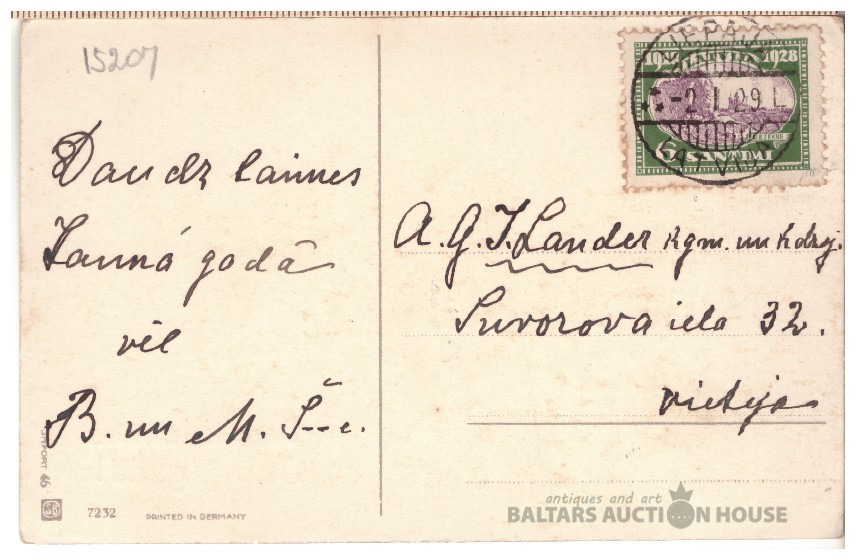 15207
Daudz laimes
Jaunā gadā
vēl
B. un M. Š--c.
1918 1928
LATVIJA
6 SANTIMI
LIEPĀJA
-2 I 29 L
LATVIJA
A. G. J. Lander kgm. un kdzej.
Suvorova iela 32.
vietējā
46
7232 PRINTED IN GERMANY
antiques and art
BALTARS AUCTION HOUSE